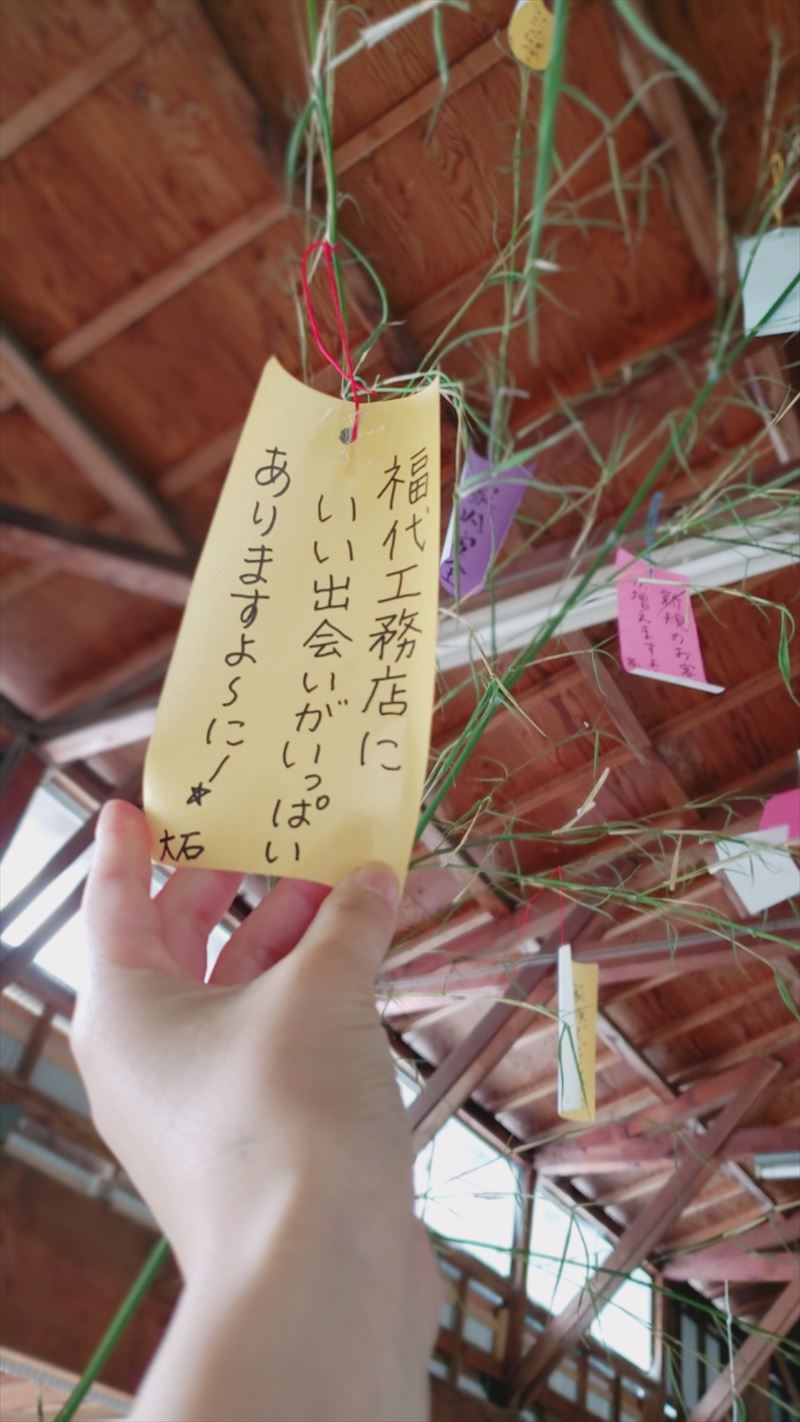 福代工務店に
いい出会いがいっぱい
ありますよ～に！☆
大石
新規のお客
増えますよ